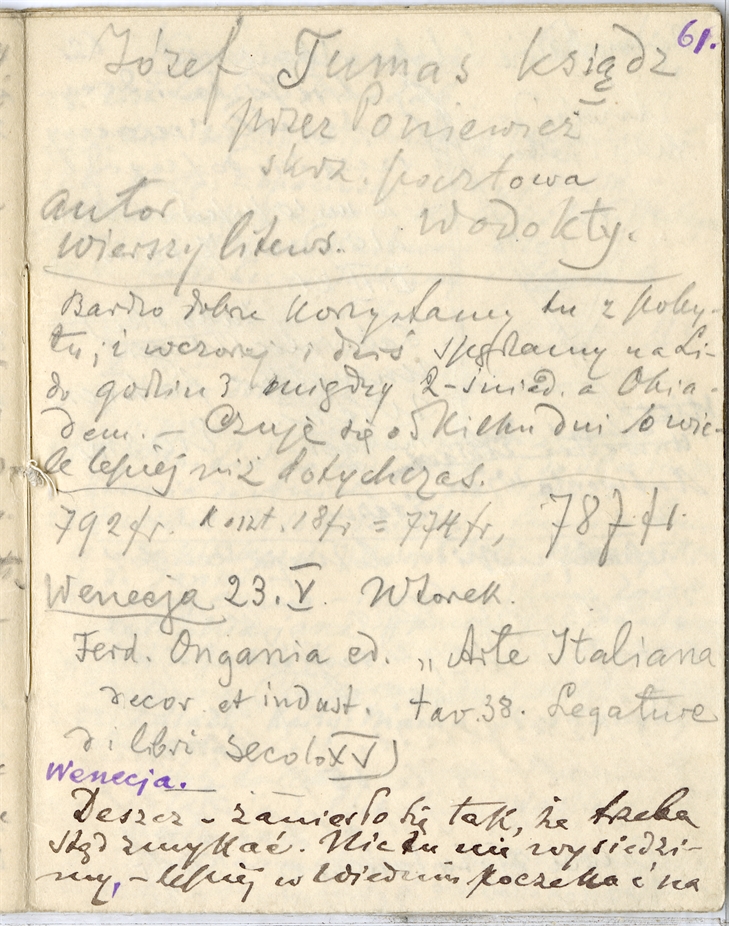 61.
Józef Tumas ksiądz
przez Poniewież
skrz. pocztowa
autor Wodokty.
wierszy litews.
Bardzo dobrze korzystamy tu z poby-
tu, i wczoraj i dziś spędzamy na Li-
do godzin 3 między 2-śnied. a Obia-
dem. – Czuję się od kilku dni o wie-
le lepiej niż dotychczas.
792 fr. koszt. 18 fr = 774 fr, 787 fr.
Wenecja 23. V. Wtorek.
Ferd. Ongania ed. „Arte Italiana
decor. et indust. tav. 38. Legature
di libri secolo XV)
Wenecja.
Deszcz – zaniosło się tak, że trzeba
stąd zmykać. Nic tu nie wysiedzi-
my, – lepiej w Wiedniu poczekać na